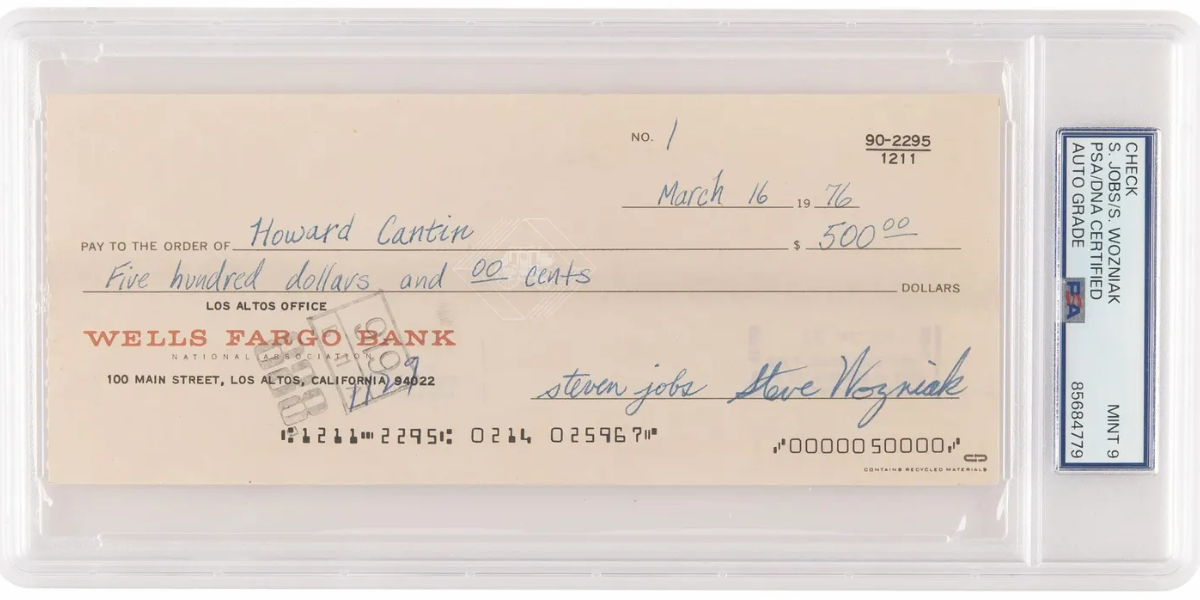 NO. 1
90-2295
1211
March 16 19 76
PAY TO THE ORDER OF Howard Cantin $ 500 00
Five hundred dollars and 00 cents DOLLARS
LOS ALTOS OFFICE
WELLS FARGO BANK
NATIONAL ASSOCIATION
100 MAIN STREET, LOS ALTOS, CALIFORNIA 94022
919
1129
steven jobs Steve Wozniak
⑆1211⑉2295⑆ 0214 025967⑈
⑇0000050000⑇
CONTAINS RECYCLED MATERIALS
CHECK
S. JOBS/S. WOZNIAK
PSA/DNA CERTIFIED
AUTO GRADE
MINT 9
85684779
PSA